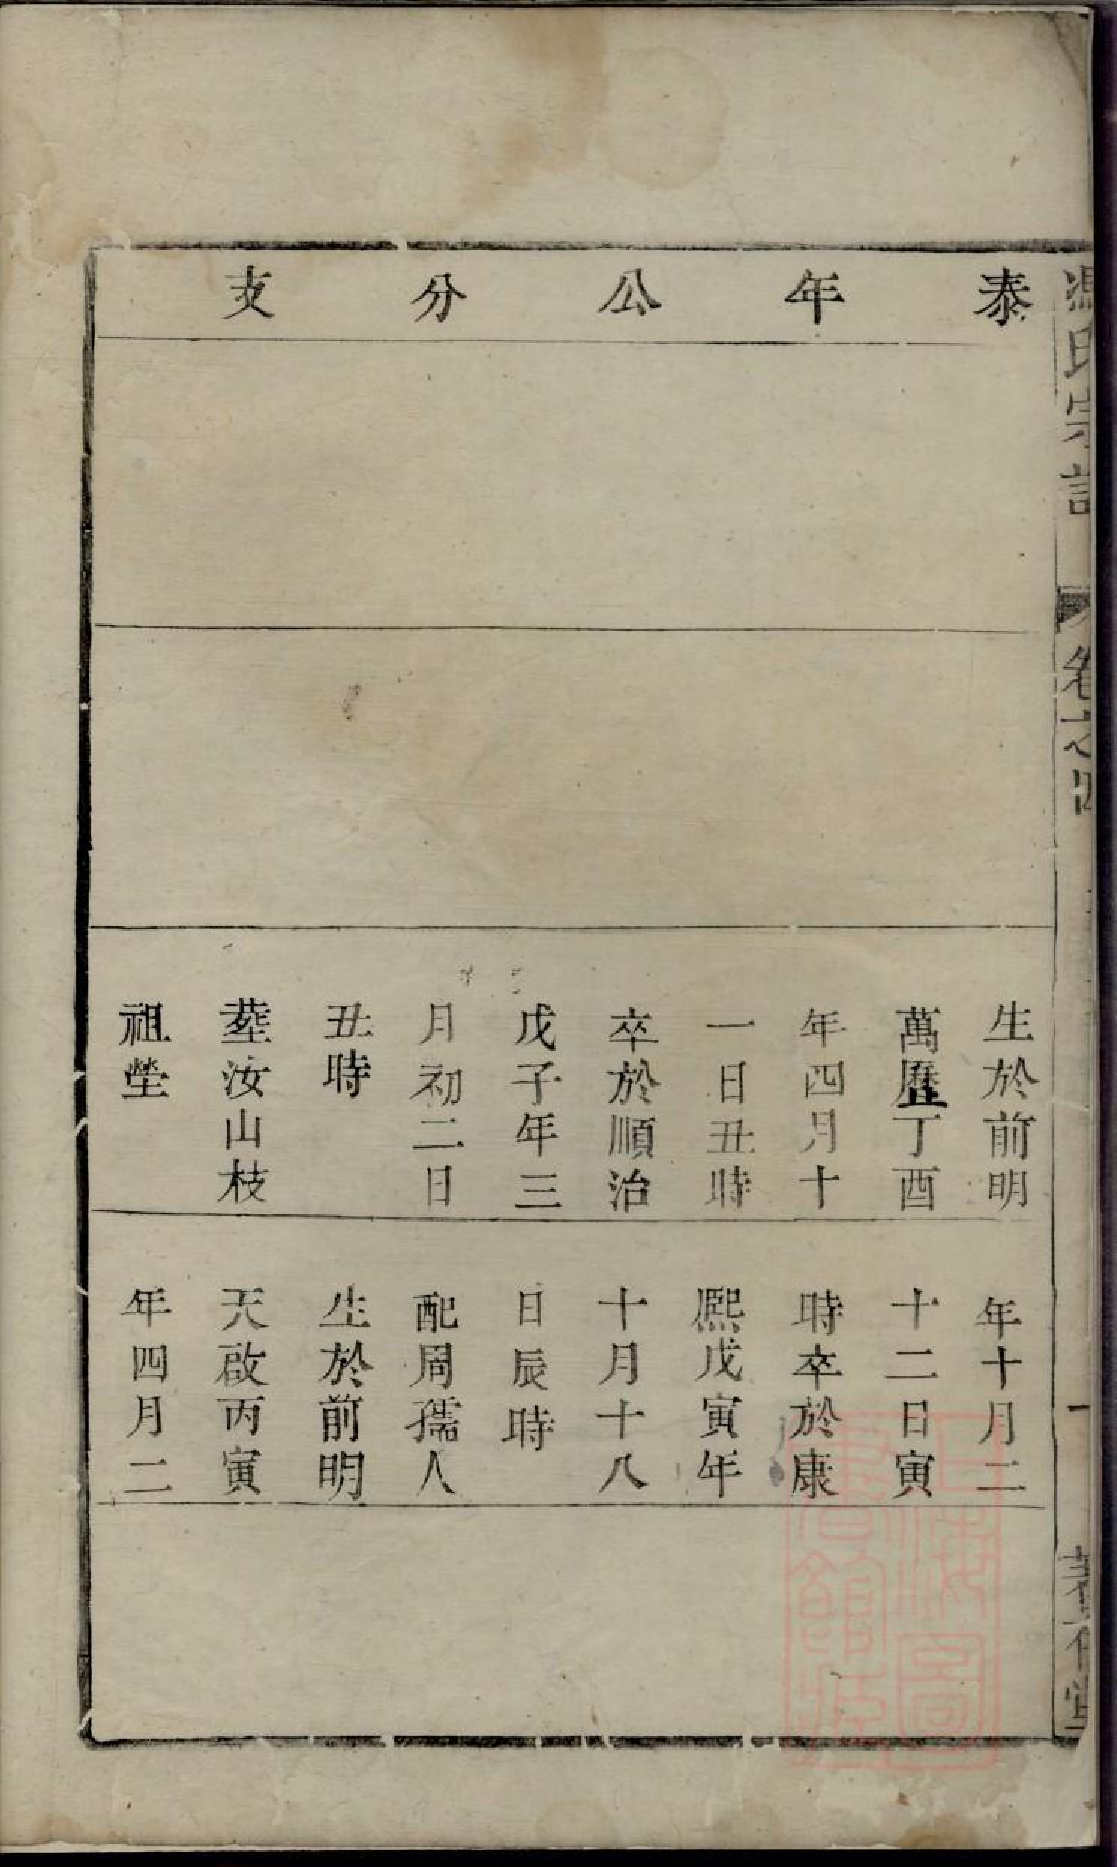 泰年公分支
生於前明
萬曆丁酉
年四月十
一日丑時
卒於順治
戊子年三
月初二日
丑時
葬汝山枝
祖塋
年十月二
十二日寅
時卒於康
熙戊寅年
十月十八
日辰時
配周孺人
生於前明
天啟丙寅
年四月二
馮氏宗譜
卷之四
一
上海圖書館藏